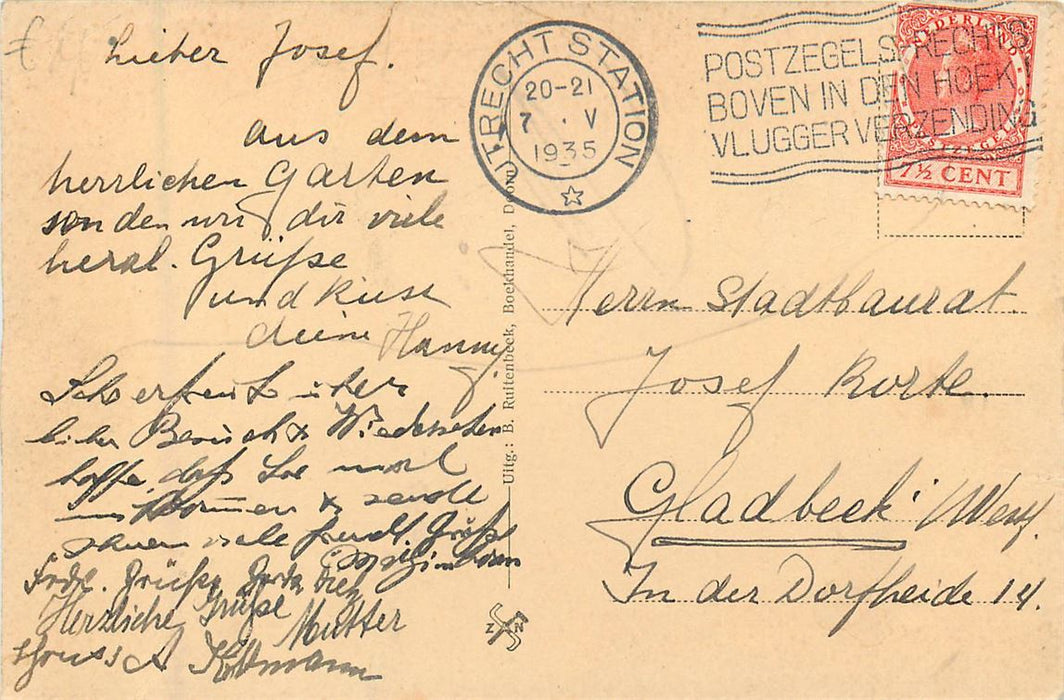 Lieber Josef.
aus dem
herrlichen Garten
senden wir dir viele
herzl. Grüße
und Küsse
deine Hanny
Sehr erfreut über
lieben Besuch & Wiedersehen
hoffe, daß Sie mal
kommen & sende
Ihnen viele freundl. Grüße
Frdl. Grüße
Herzliche Grüße
Mutter
UTRECHT STATION
20-21
7 · V
1935
POSTZEGELS RECHTS
BOVEN IN DEN HOEK
VLUGGER VERZENDING
NEDERLAND
POSTZEGEL
7½ CENT
Uitg.: B. Ruitenbeck, Boekhandel, Doorn
Z N
Herrn Stadtbaurat
Josef Korte.
Gladbeck (Westf.
In der Dorfheide 14.